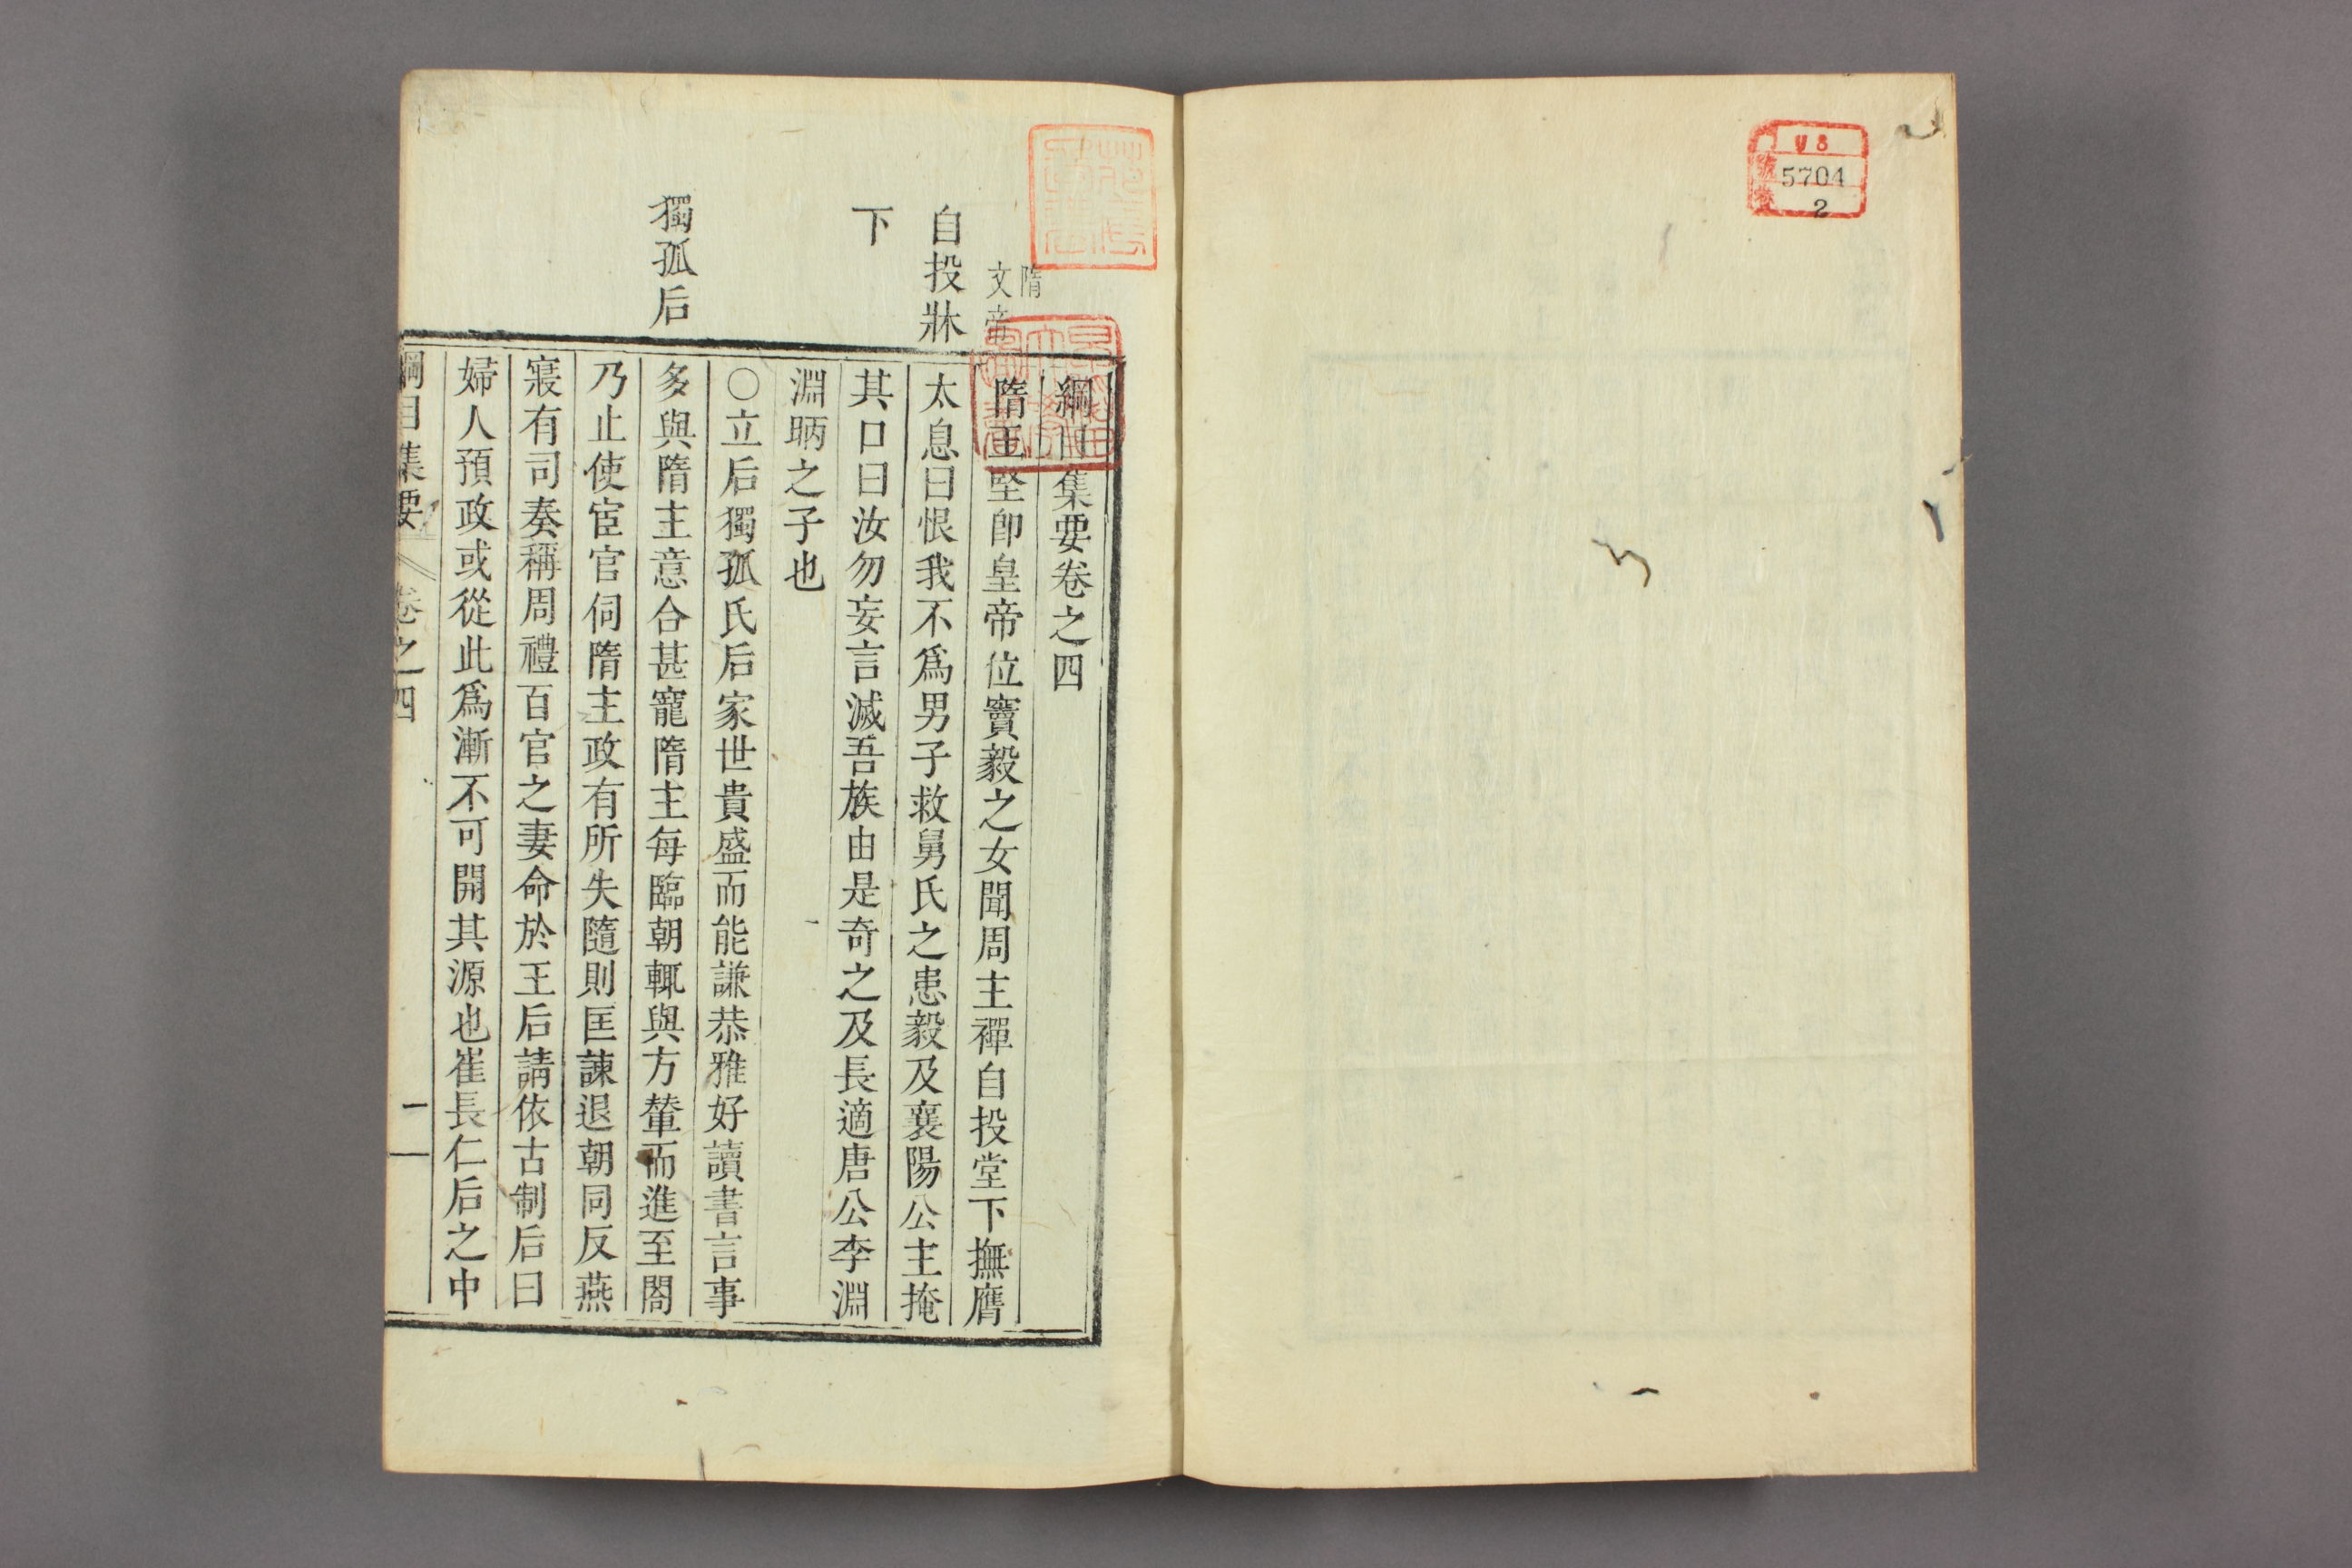 5704
2
隋
文帝
自投牀
下
獨孤后
綱目集要卷之四
隋王堅卽皇帝位竇毅之女聞周主禪自投堂下撫膺
太息曰恨我不爲男子救舅氏之患毅及襄陽公主掩
其口曰汝勿妄言滅吾族由是奇之及長適唐公李淵
淵昞之子也
○立后獨孤氏后家世貴盛而能謙恭雅好讀書言事
多與隋主意合甚寵隋主每臨朝輒與方輦而進至閤
乃止使宦官伺隋主政有所失隨則匡諫退朝同反燕
寢有司奏稱周禮百官之妻命於王后請依古制后曰
婦人預政或從此爲漸不可開其源也崔長仁后之中
綱目集要 卷之四 一